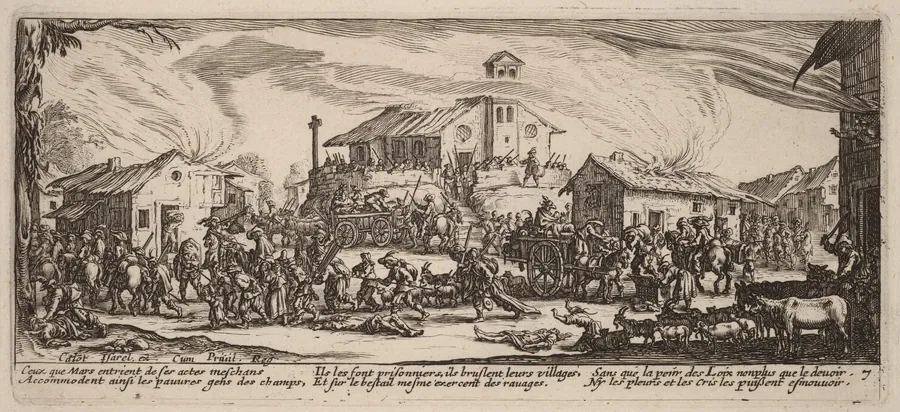 Calot Israel. ex. Cum Priuil. Reg
Ceux que Mars entrient de ses actes meschans
Accommodent ainsi les pauures gens des champs,
Ils les font prisonniers, ils bruslent leurs villages,
Et sur le bestail mesme exercent des rauages.
Sans que la peur des Loix nonplus que le deuoir.
Ny les pleurs et les cris les puissent esmouuoir.
7